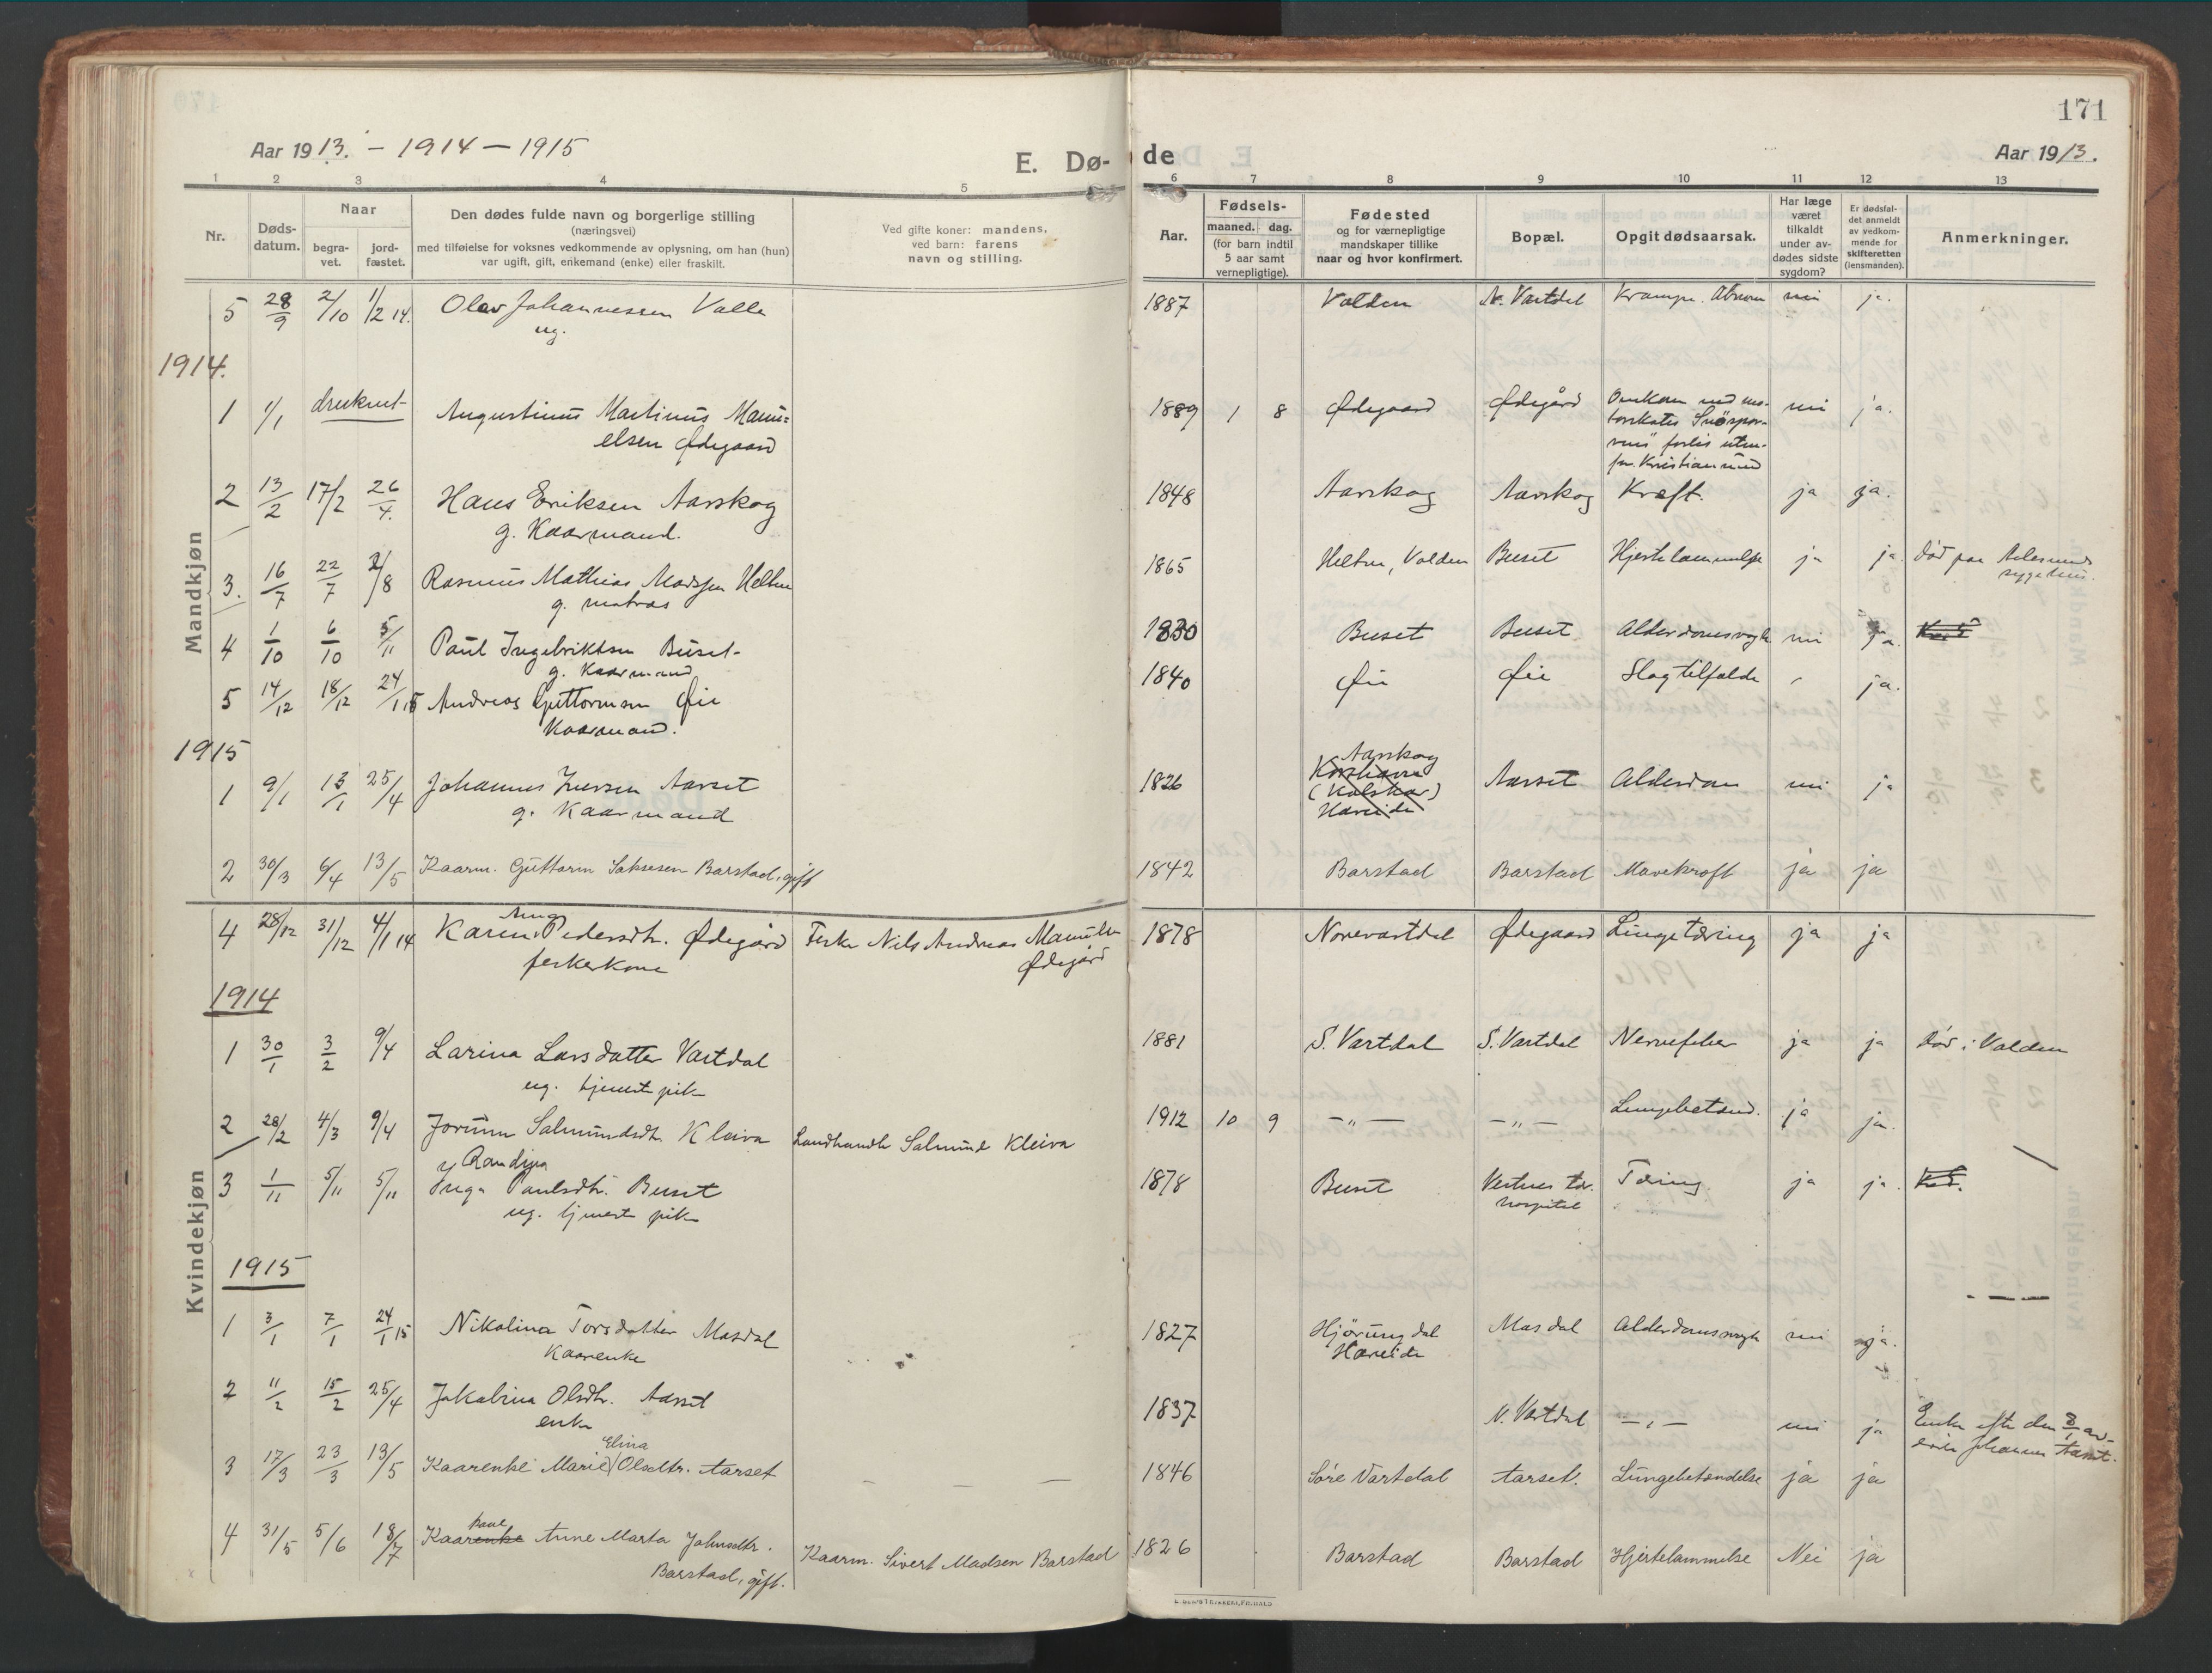 171
Aar 1913. - 1914 - 1915
E. Dø-
de
Aar 1913.
1 2 3 4 5 6 7 8 9 10 11 12 13
Nr.
Døds-
datum.
Naar
begra-
vet.
jord-
fæstet.
Den dødes fulde navn og borgerlige stilling
(næringsvei)
med tilføielse for voksnes vedkommende av oplysning, om han (hun)
var ugift, gift, enkemand (enke) eller fraskilt.
Ved gifte koner: mandens,
ved barn: farens
navn og stilling.
Aar.
Fødsels-
maaned. dag.
(for barn indtil
5 aar samt
vernepligtige).
Fødested
og for værnepligtige
mandskaper tillike
naar og hvor konfirmert.
Bopæl.
Opgit dødsaarsak.
Har læge
været
tilkaldt
under av-
dødes sidste
sygdom?
Er dødsfal-
det anmeldt
av vedkom-
mende for
skifteretten
(lensmanden).
Anmerkninger.
Mandkjøn
5 28/9 2/10 1/2 14. Olav Johannessen Valle 1887 Volden N. Vartdal ja.
ug.
1914.
1 1/1 druknet Augustinus Martinus Manu= 1889 1 8 Ødegaard Ødegård Omkom med mo- ja.
elsen Ødegaard
2 13/2 17/2 26/4. Hans Eriksen Aarskog 1848 Aarskog Aarskog Kræft. ja ja.
g. Kaarmand.
3. 16/7 22/7 2/8 Rasmus Mathias Madssen 1865 Volden Buset Hjertelammelse ja ja død paa Aalesunds
g. sygehus.
4 1/10 6/10 5/11 Paul Ingebriktsen Buset 1830 Buset Buset Alderdomssvagh. ja.
g. Kaarmand
5 14/12 18/12 24/1 15 Andreas Guttormsen Øie 1840 Øie Øie Slagtilfælde ja.
Kaarmand.
1915
1 9/1 13/1 25/4 Johannes Iversen Aarset 1826 Aarskog Aarset Alderdom ja
g. Kaarmand Hareide
2 30/3 6/4 13/5 Kaarm. Guttorm Saksesen Barstad, gift 1842 Barstad Barstad Mavekræft ja ja
Kvindekjøn
4 28/12 31/12 4/1 14 Karen Anna Pedersdtr. Ødegård Nils Andreas 1878 Norevartdal Ødegaard Lungetæring ja ja
fiskerkone Ødegård
1914
1 30/1 3/2 9/4 Larina Larsdatter Vartdal 1881 S. Vartdal S. Vartdal Nervefeber ja ja død i Volden
ug. tjenestpike
2 28/2 4/3 9/4 Jorunn Salmundsdtr. Kleiva Landhandler Salmund Kleiva 1912 10 9 - „ - - „ - Lungebetænd. ja ja.
3 1/11 5/11 5/11 Inga Randina Paulsdtr. Buset 1878 Buset Tæring ja ja.
ug. tjenestpike hospital
1915
1 3/1 7/1 24/1 15 Nikolina Torsdatter Masdal 1827 Hjørungdal Masdal Alderdomssvagh ja.
Kaarenke Hareide
2 11/2 15/2 25/4 Jakobina Olsdtr. Aarset 1837 N. Vartdal - „ - ja
enke
3 17/3 23/3 13/5 Kaarenke Marie Elina Olsdtr. Aarset — — — 1846 Søre Vartdal Aarset. Lungebetændelse ja ja
4 31/5 5/6 18/7 Kaarenke kone Anne Marta Johnsdtr. Kaarm. Sivert Madsen Barstad 1826 Barstad Barstad Hjertelammelse Nei ja
Barstad, gift.